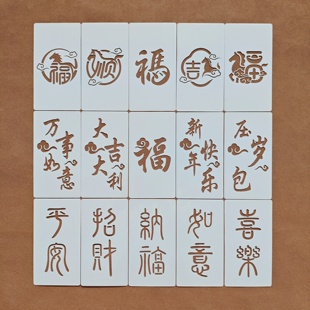 福 顺 福 吉 福
万事如意 大吉大利 福 新年快乐 压岁包
平安 招財 納福 如意 喜樂